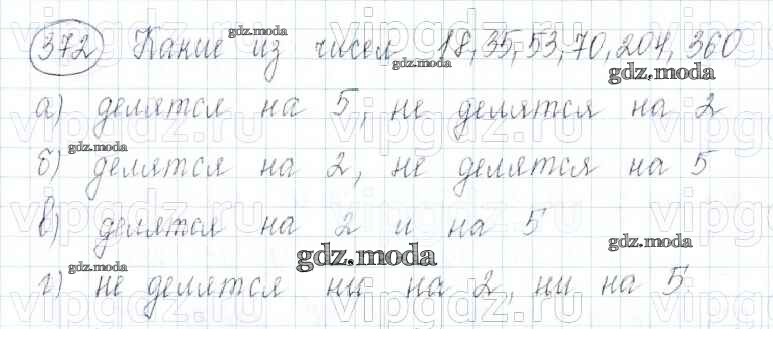 372 Какие из чисел 18, 35, 53, 70, 204, 360
а) делятся на 5, не делятся на 2
б) делятся на 2, не делятся на 5
в) делятся на 2 и на 5
г) не делятся ни на 2, ни на 5.
gdz.moda
gdz.moda
gdz.moda
gdz.moda
gdz.moda
gdz.moda
gdz.moda
vipgdz.ru